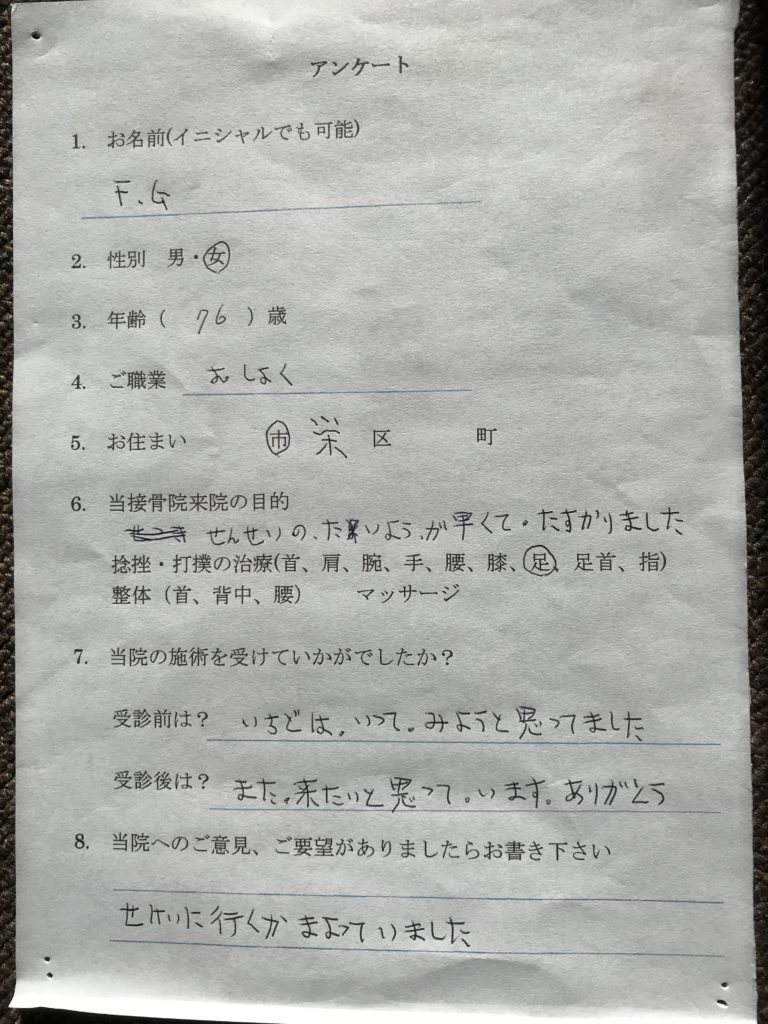 アンケート
1. お名前(イニシャルでも可能)
F.G
2. 性別 男・女
3. 年齢( 76 )歳
4. ご職業 むしよく
5. お住まい 市 栄 区 町
6. 当接骨院来院の目的
せんせいの、たいよう、が早くて・たすかりました
捻挫・打撲の治療(首、肩、腕、手、腰、膝、足、足首、指)
整体(首、背中、腰) マッサージ
7. 当院の施術を受けていかがでしたか?
受診前は? いちどは。いって。みようと思ってました
受診後は? また。来たいと思って。います。ありがとう
8. 当院へのご意見、ご要望がありましたらお書き下さい
に行くかまよっていました